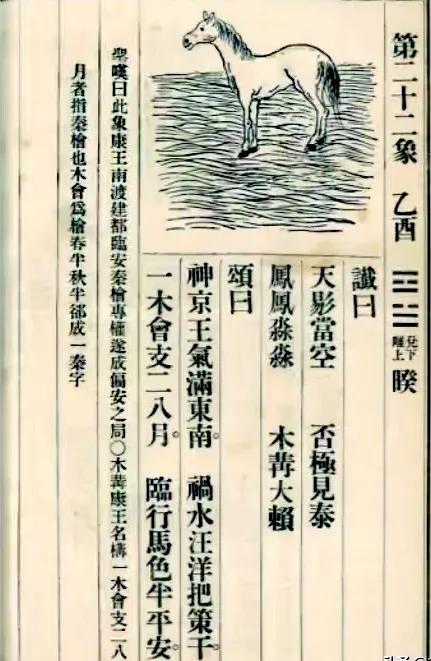 第二十二象 乙酉 ䷥ 兌下離上 睽
讖曰
天影當空 否極見泰
鳳鳳淼淼 木冓大賴
頌曰
神京王氣滿東南。 禍水汪洋把策干。
一木會支二八月。 臨行馬色半平安。
聖嘆曰此象康王南渡建都臨安秦檜專權遂成偏安之局〇木冓康王名構一木會支二八
月者指秦檜也木會爲檜春半秋半卻成一秦字